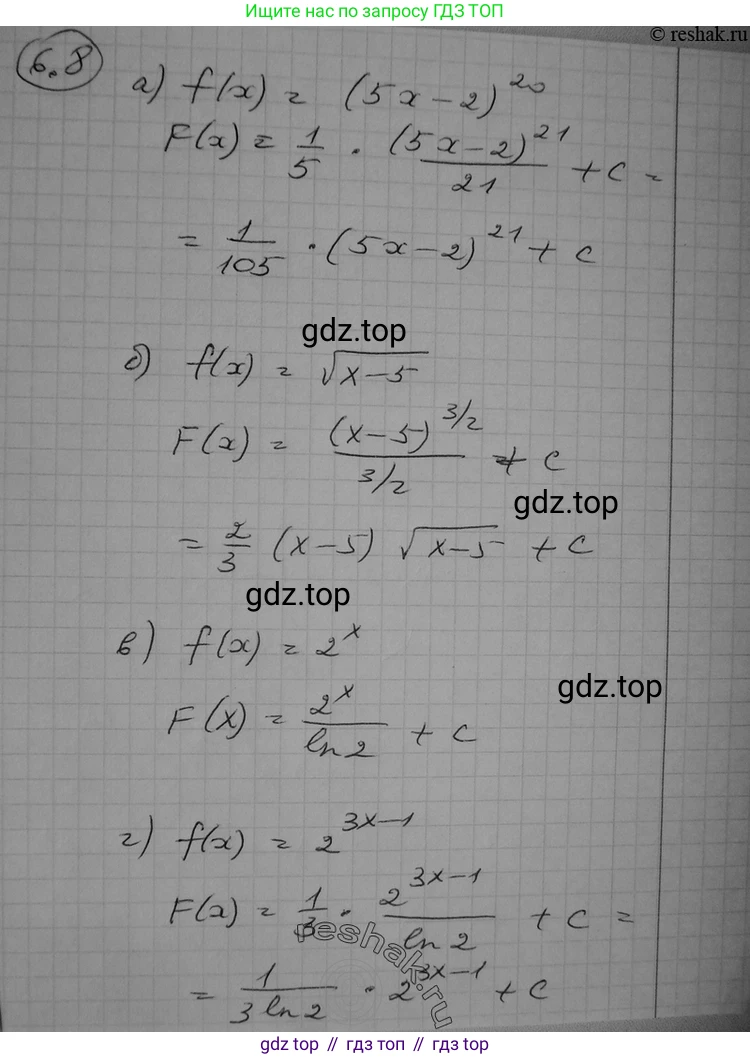 Ищите нас по запросу ГДЗ ТОП
© reshak.ru
6.8
а) f(x) = (5x-2)^20
F(x) = 1/5 · (5x-2)^21/21 + C =
= 1/105 · (5x-2)^21 + C
gdz.top
б) f(x) = √(x-5)
F(x) = (x-5)^(3/2)/(3/2) + C
gdz.top
= 2/3 (x-5) √(x-5) + C
gdz.top
в) f(x) = 2^x
gdz.top
F(x) = 2^x/ln2 + C
г) f(x) = 2^(3x-1)
F(x) = 1/3 · 2^(3x-1)/ln2 + C =
reshak.ru
= 1/(3ln2) · 2^(3x-1) + C
gdz top // гдз топ // gdz top